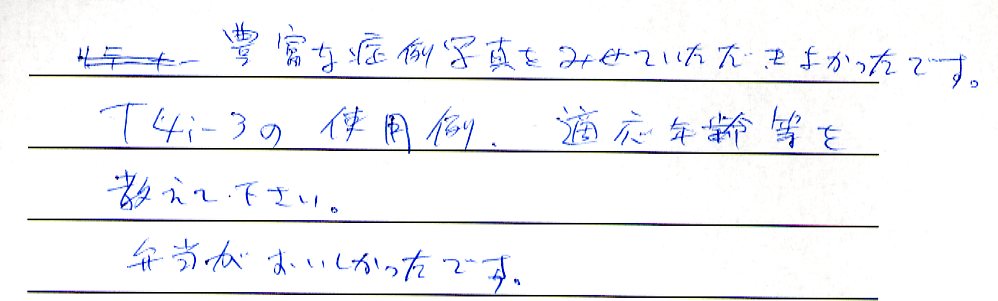 豊富な症例写真をみせていただきよかったです。
T4i-3の使用例、適応年齢等を
教えて下さい。
弁当がおいしかったです。